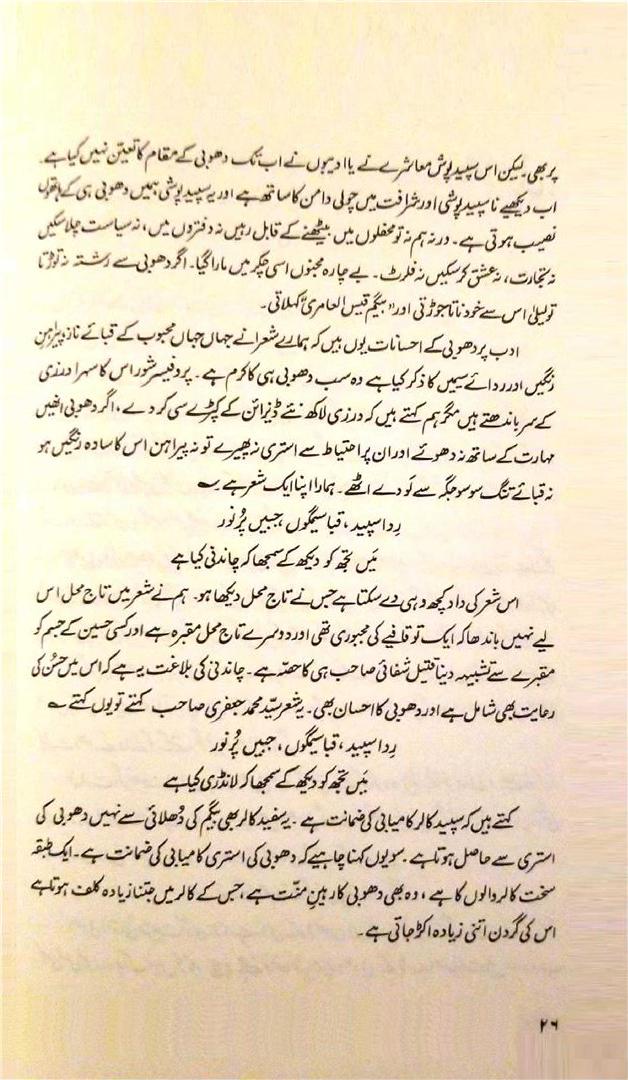 پر بھی۔ لیکن اس سپید پوش معاشرے نے یا ادیبوں نے اب تک دھوبی کے مقام کا تعین نہیں کیا ہے۔
اب دیکھیے نا سپید پوشی اور شرافت میں چولی دامن کا ساتھ ہے اور یہ سپید پوشی ہمیں دھوبی ہی کے ہاتھوں
نصیب ہوتی ہے۔ ورنہ ہم نہ تو محفلوں میں بیٹھنے کے قابل رہیں نہ دفتروں میں، نہ سیاست چلا سکیں
نہ تجارت، نہ عشق کر سکیں نہ فلرٹ۔ بے چارہ مجنوں اسی چکر میں مارا گیا۔ اگر دھوبی سے رشتہ نہ توڑتا
تو لیلیٰ اس سے خود ناتا جوڑتی اور "بیگم قیس العامری" کہلاتی۔
ادب پر دھوبی کے احسانات یوں ہیں کہ ہمارے شعرا نے جہاں جہاں محبوب کے قبائے ناز پیراہنِ
رنگیں اور ردائے سیمیں کا ذکر کیا ہے وہ سب دھوبی ہی کا کرم ہے۔ پروفیسر شور اس کا سہرا درزی
کے سر باندھتے ہیں مگر ہم کہتے ہیں کہ درزی لاکھ نئے ڈیزائن کے کپڑے سی کر دے، اگر دھوبی انھیں
مہارت کے ساتھ نہ دھوئے اور ان پر احتیاط سے استری نہ پھیرے تو نہ پیراہن اس کا سادہ رنگیں ہو
نہ قبائے تنگ سو سو جگہ سے لَو دے اٹھے۔ ہمارا اپنا ایک شعر ہے ؎
رِدا سپید، قبا سیمگوں، جبیں پُر نور
مَیں تجھ کو دیکھ کے سمجھا کہ چاندنی کیا ہے
اس شعر کی داد کچھ وہی دے سکتا ہے جس نے تاج محل دیکھا ہو۔ ہم نے شعر میں تاج محل اس
لیے نہیں باندھا کہ ایک تو قافیے کی مجبوری تھی اور دوسرے تاج محل مقبرہ ہے اور کسی حسین کے جسم کو
مقبرے سے تشبیہہ دینا قتیل شفائی صاحب ہی کا حصّہ ہے۔ چاندنی کی بلاغت یہ ہے کہ اس میں حُسن کی
رعایت بھی شامل ہے اور دھوبی کا احسان بھی۔ یہ شعر سیّد محمد جعفری صاحب کہتے تو یوں کہتے ؎
رِدا سپید، قبا سیمگوں، جبیں پُر نور
مَیں تجھ کو دیکھ کے سمجھا کہ لانڈری کیا ہے
کہتے ہیں کہ سپید کالر کامیابی کی ضمانت ہے۔ یہ سفید کالر بھی بیگم کی دُھلائی سے نہیں دھوبی کی
استری سے حاصل ہوتا ہے۔ سو یوں کہنا چاہیے کہ دھوبی کی استری کامیابی کی ضمانت ہے۔ ایک طبقہ
سخت کالر والوں کا ہے، وہ بھی دھوبی کا رہینِ منّت ہے، جس کے کالر میں جتنا زیادہ کلف ہوتا ہے
اس کی گردن اتنی زیادہ اکڑ جاتی ہے۔
۲۶